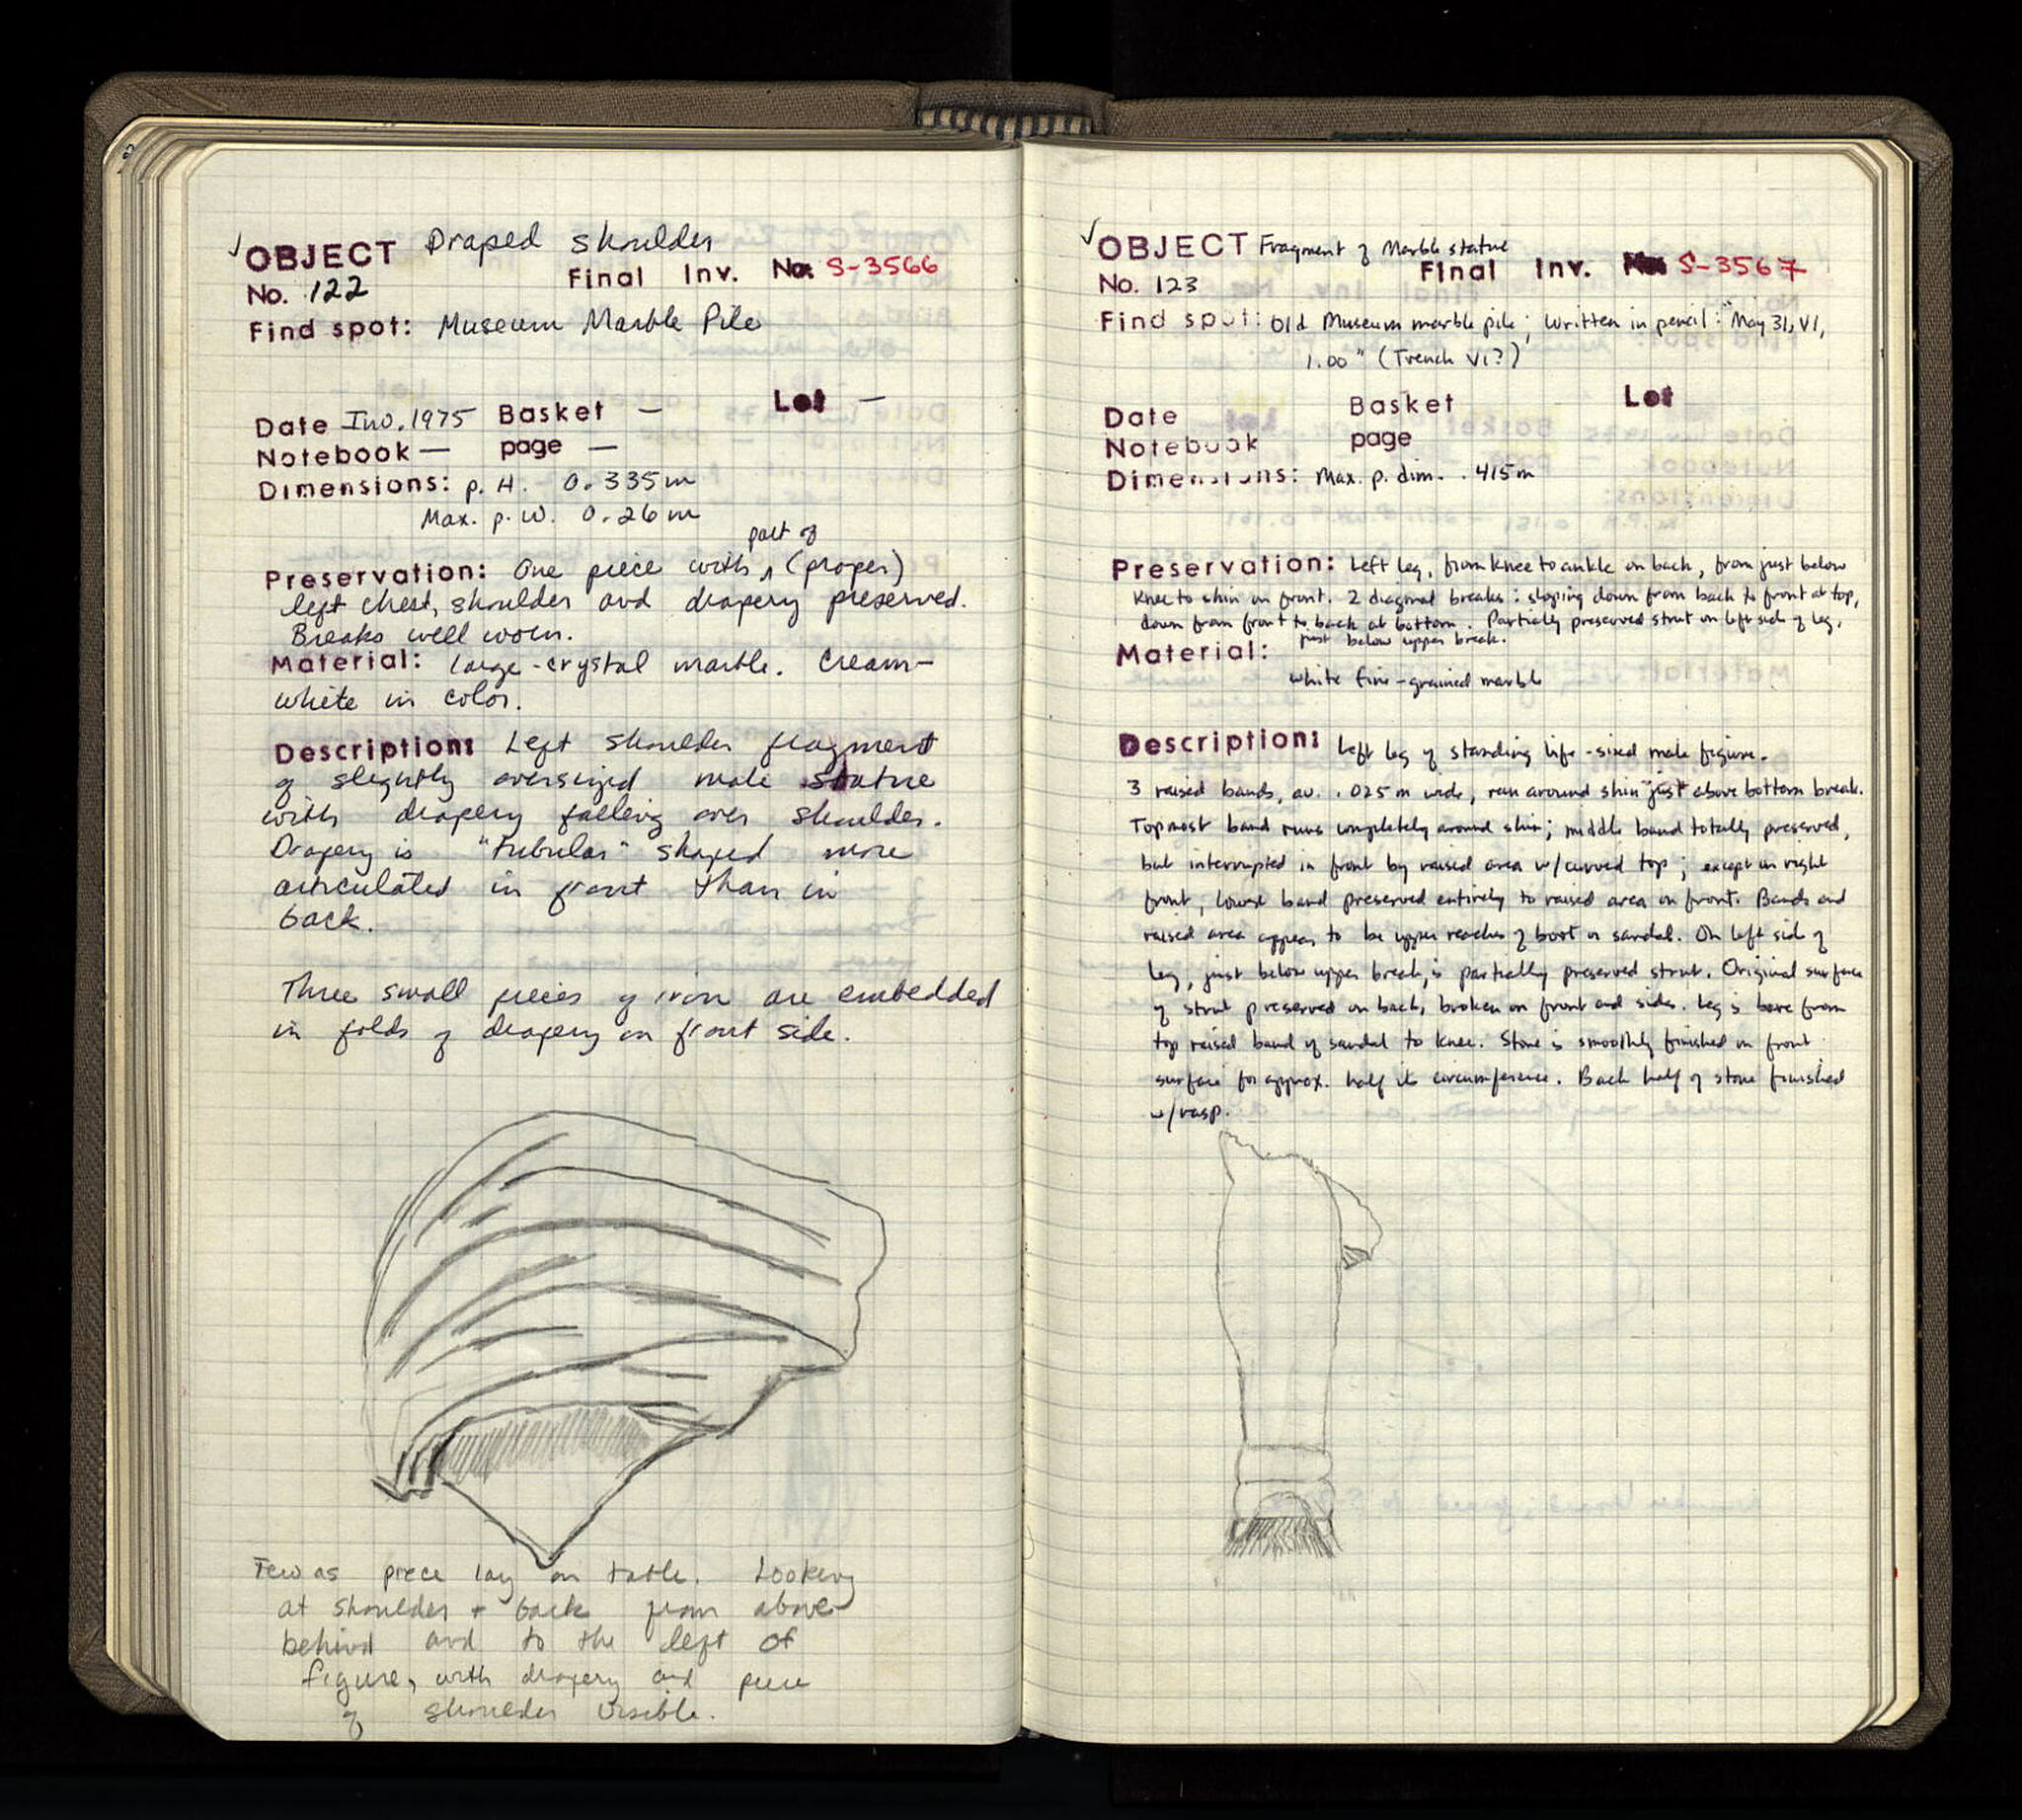 ✓ OBJECT Draped shoulder
Final Inv. No. S-3566
No. 122
Find spot: Museum Marble Pile
Date Inv. 1975 Basket — Lot —
Notebook — page —
Dimensions: p. H. 0.335m
Max. p. W. 0.26m
part of
Preservation: One piece with ∧ (proper)
left chest, shoulder and drapery preserved.
Breaks well worn.
Material: Large-crystal marble. Cream-
white in color.
Description: Left shoulder fragment
of slightly oversized male statue
with drapery falling over shoulder.
Drapery is "tubular" shaped more
articulated in front than in
back.
Three small pieces of iron are embedded
in folds of drapery on front side.
View as piece lay on table. Looking
at shoulder + back from above
behind and to the left of
figure, with drapery and piece
of shoulder visible.
✓ OBJECT Fragment of Marble statue
Final Inv. No. S-3567
No. 123
Find spot: Old Museum marble pile; written in pencil: "May 31, VI,
1.00" (Trench VI?)
Date Basket Lot
Notebook page
Dimensions: Max. p. dim. .415m
Preservation: Left leg, from knee to ankle on back, from just below
knee to shin on front. 2 diagonal breaks: sloping down from back to front at top,
down from front to back at bottom. Partially preserved strut on left side of leg,
just below upper break.
Material:
white fine-grained marble
Description: Left leg of standing life-sized male figure.
3 raised bands, av. .025m wide, run around shin just above bottom break.
Topmost band runs completely around shin; middle band totally preserved,
but interrupted in front by raised area w/curved top; except on right
front, lower band preserved entirely to raised area on front. Bands and
raised area appear to be upper reaches of boot or sandal. On left side of
leg, just below upper break, is partially preserved strut. Original surface
of strut preserved on back, broken on front and sides. Leg is bare from
top raised band of sandal to knee. Stone is smoothly finished on front
surface for approx. half its circumference. Back half of stone finished
w/rasp.